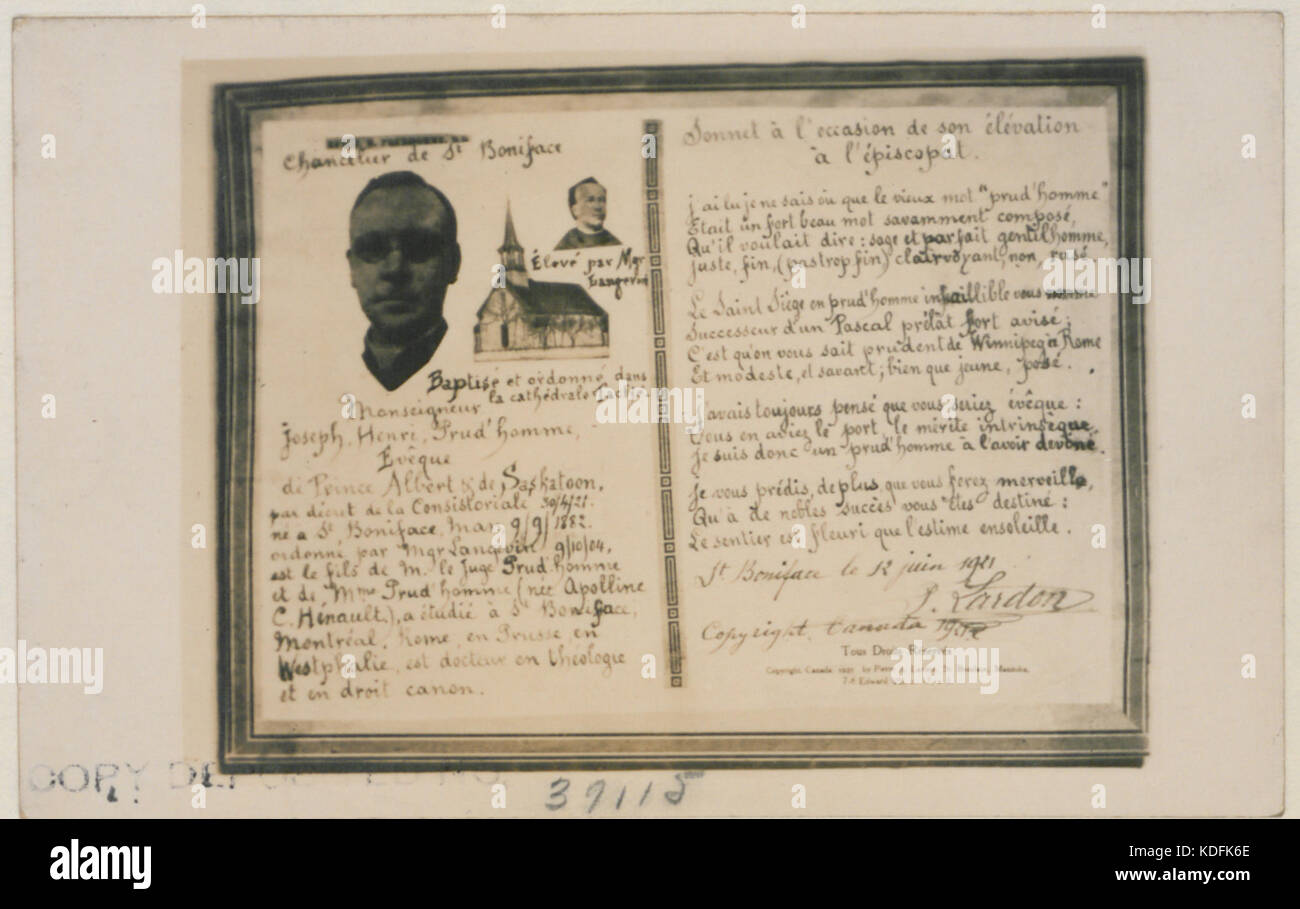 Chancelier de St Boniface
Élevé par Mgr
Langevin
Baptisé et ordonné dans
la cathédrale Taché.
Monseigneur
Joseph, Henri, Prud'homme,
Evêque
de Prince Albert & de Saskatoon,
par décret de la Consistoriale 30/4/21.
né a St Boniface, Man 9/9/1882.
ordonné par Mgr Langevin 9/10/04,
est le fils de M. le Juge Prud'homme
et de Mme Prud'homme (née Apolline
C. Hénault,), a étudié à St Boniface,
Montréal, Rome, en Prusse, en
Westphalie, est docteur en théologie
et en droit canon.
Sonnet à l'occasion de son élévation
à l'épiscopat.
J'ai lu je ne sais ou que le vieux mot "prud'homme"
Etait un fort beau mot savamment composé,
Qu'il voulait dire: sage et parfait gentilhomme,
juste, fin, (pas trop fin) clairvoyant, non, rusé.
Le Saint Siège en prud'homme infaillible vous nomme
Successeur d'un Pascal prélat fort avisé;
C'est qu'on vous sait prudent de Winnipeg à Rome
Et modeste, et savant; bien que jeune, posé.
J'avais toujours pensé que vous seriez évêque:
Vous en aviez le port, le mérite intrinsèque,
Je suis donc un prud'homme à l'avoir deviné.
Je vous prédis, de plus, que vous ferez merveille,
Qu'à de nobles succès vous êtes destiné:
Le sentier est fleuri que l'estime ensoleille.
St Boniface le 12 juin 1921
P. Lardon
Copyright, Canada
Tous Droits Réservés
Copyright, Canada 1921 by Pierre Lardon, St. Boniface, Manitoba,
COPY DEPOSITED NO.
39115
alamy
Image ID: KDFK6E
www.alamy.com